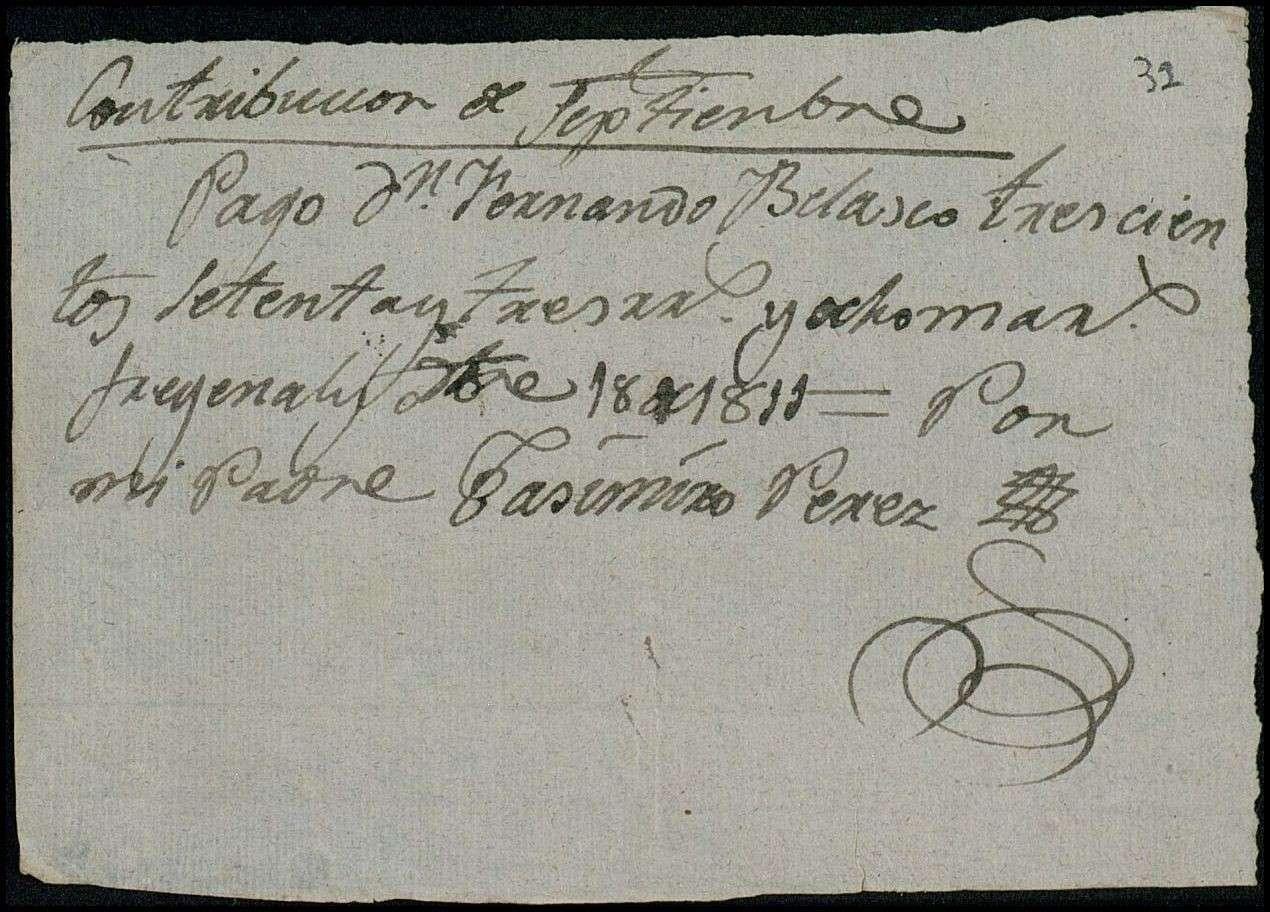 32
Contribucion de Septienbre
Pago Dn. Fernando Belasco trescien
tos Setenta y tres rrs. y ocho mars.
fregenal y 18 de 1811 = Por
mi Padre Casimiro Perez